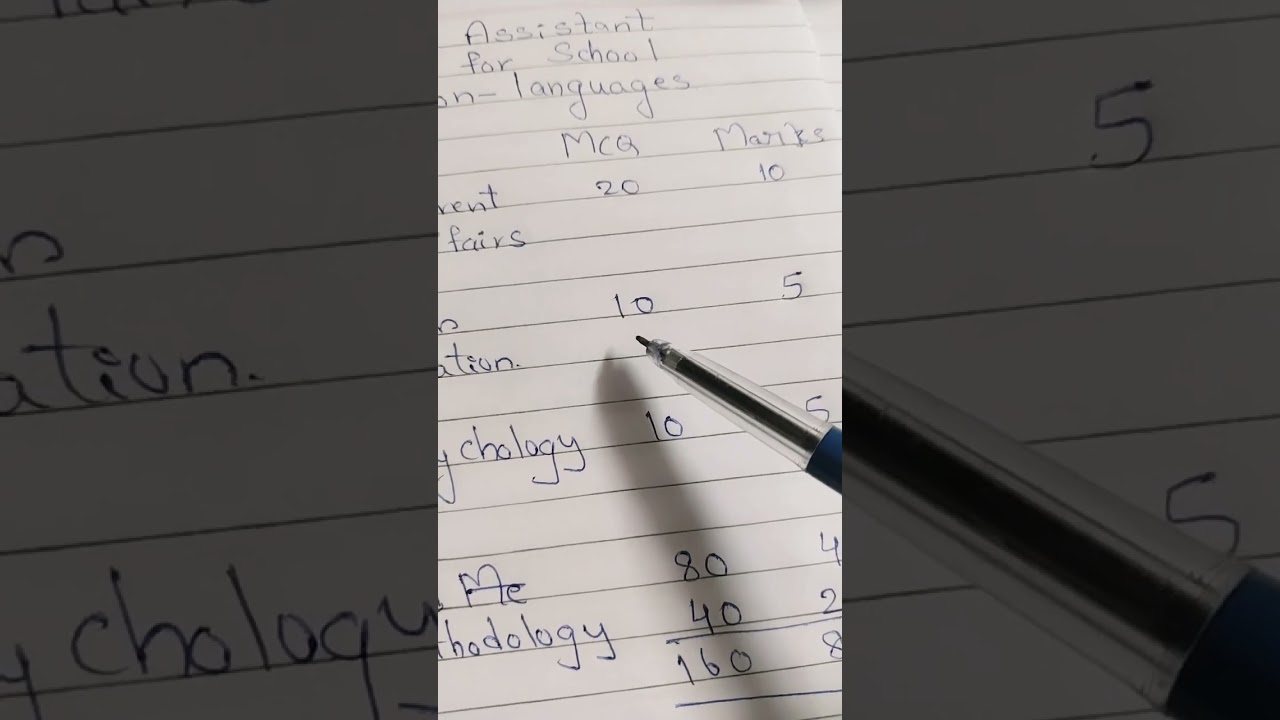 Assistant
for School
on-languages
MCQ Marks
rent 20 10
fairs
n 10 5
ation.
ychology 10 5
Me 80 4
hodology 40 2
160 8